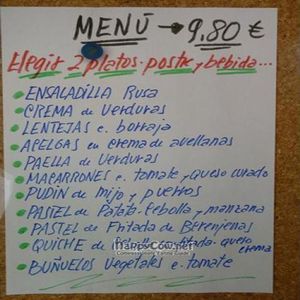 MENÚ → 9,80 €
Elegir 2 platos-postre y bebida...
ENSALADILLA Rusa
CREMA de Verduras
LENTEJAS c. borraja
ACELGAS en crema de avellanas
PAELLA de Verduras
MACARRONES c. tomate y queso curado
PUDIN de mijo y puerros
PASTEL de Patata-cebolla y manzana
PASTEL de Fritada de Berenjenas
QUICHE de queso crema
BUÑUELOS Vegetales c. tomate